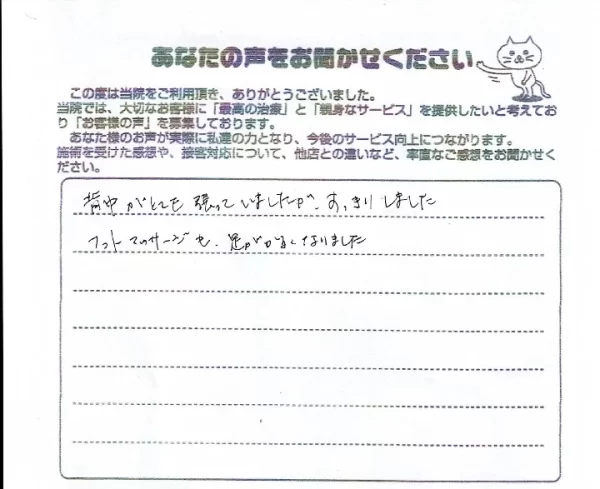 あなたの声をお聞かせください
この度は当院をご利用頂き、ありがとうございました。
当院では、大切なお客様に「最高の治療」と「親身なサービス」を提供したいと考えてお
り「お客様の声」を募集しております。
あなた様のお声が実際に私達の力となり、今後のサービス向上につながります。
施術を受けた感想や、接客対応について、他店との違いなど、率直なご感想をお聞かせく
ださい。
背中がとても張っていましたが、すっきりしました
フットマッサージも、足がかるくなりました